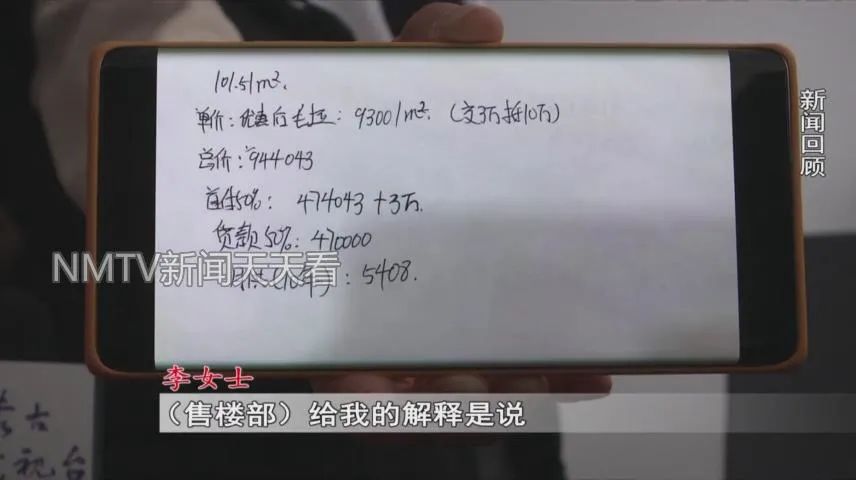 101.51m².
单价：优惠后毛坯：9300/m². （交3万抵10万）
总价：944043
首付50%： 474043+3万.
贷款50%：470000
：5408.
NMTV新闻天天看
新闻回顾
李女士
（售楼部）给我的解释是说
视台